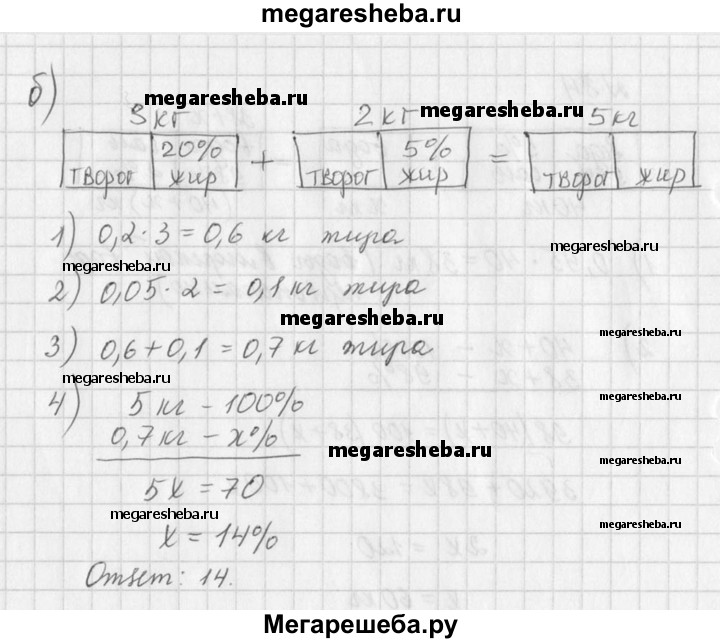 megaresheba.ru
б)
3 кг 2 кг 5 кг
megaresheba.ru megaresheba.ru
творог 20% жир + творог 5% жир = творог жир
1) 0,2·3=0,6 кг жира
megaresheba.ru
megaresheba.ru
2) 0,05·2=0,1 кг жира
megaresheba.ru
3) 0,6+0,1=0,7 кг жира
megaresheba.ru
megaresheba.ru
4) 5 кг - 100%
0,7 кг - x%
megaresheba.ru
megaresheba.ru
5x=70
megaresheba.ru
megaresheba.ru
x=14%
Ответ: 14.
Мегарешеба.ру